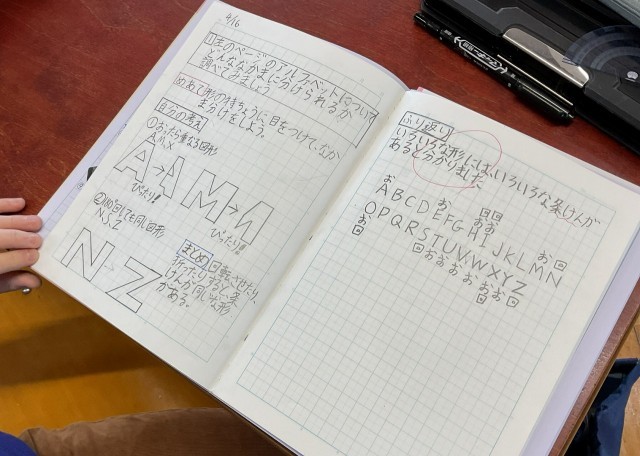 4/16
①左のページのアルファベットについて
どんななかまに分けられるか
調べてみましょう
めあて形のとくちょうに目をつけて、なか
ま分けをしよう。
自分の考え
①おったら重なる図形
A,M,X
A→A M→M
ぴったり!!
ぴったり!!
②180°回しても同じ図形
N,S,Z
N→Z
まとめ 回転させたり、
折ったりすると、条
けんが同じな形
がある。
ふり返り
いろいろな形には、いろいろな条けんが
あると分かりました
お お 回回
おお
ABCDEFGHIJKLMN
お回
OPQRSTUVWXYZ
お
回
回おおおおおお回
回